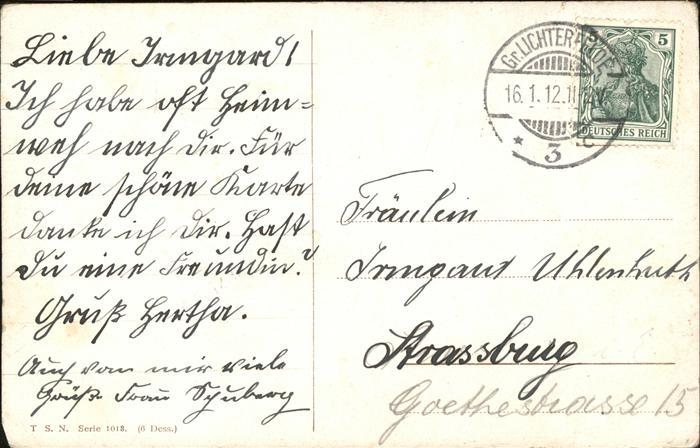 Liebe Irmgard!
Ich habe oft Heim=
weh nach Dir. Für
deine schöne Karte
danke ich Dir. Hast
Du eine Freundin?
Gruß Hertha.
Auch von mir viele
Grüße Frau Schuberg
T S. N. Serie 1013. (6 Dess.)
Gr. LICHTERFELDE
16.1.12.11-12V.
* 3 c
5
DEUTSCHES REICH
Fräulein
Irmgard Uhlenhuth
Strassburg
Goethestrasse 15